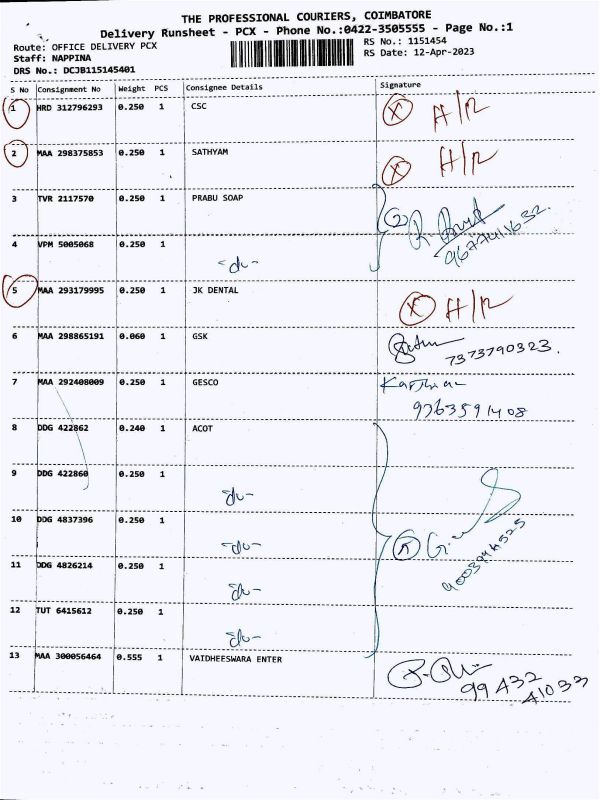 THE PROFESSIONAL COURIERS, COIMBATORE
Delivery Runsheet - PCX - Phone No.:0422-3505555 - Page No.:1
Route: OFFICE DELIVERY PCX
Staff: NAPPINA
DRS No.: DCJB115145401
RS No.: 1151454
RS Date: 12-Apr-2023
S No Consignment No Weight PCS Consignee Details Signature
1 HRD 312796293 0.250 1 CSC X H/R
2 MAA 298375853 0.250 1 SATHYAM X H/R
3 TVR 2117570 0.250 1 PRABU SOAP 2
4 VPM 5005068 0.250 1 -do-
5 MAA 293179995 0.250 1 JK DENTAL X H/R
6 MAA 298865191 0.060 1 GSK
7373790323.
7 MAA 292408009 0.250 1 GESCO
9363591408
8 DDG 422862 0.240 1 ACOT
9 DDG 422860 0.250 1 -do-
10 DDG 4837396 0.250 1 -do-
11 DDG 4826214 0.250 1 -do-
12 TUT 6415612 0.250 1 -do-
13 MAA 300056464 0.555 1 VAIDHEESWARA ENTER
99432
41033